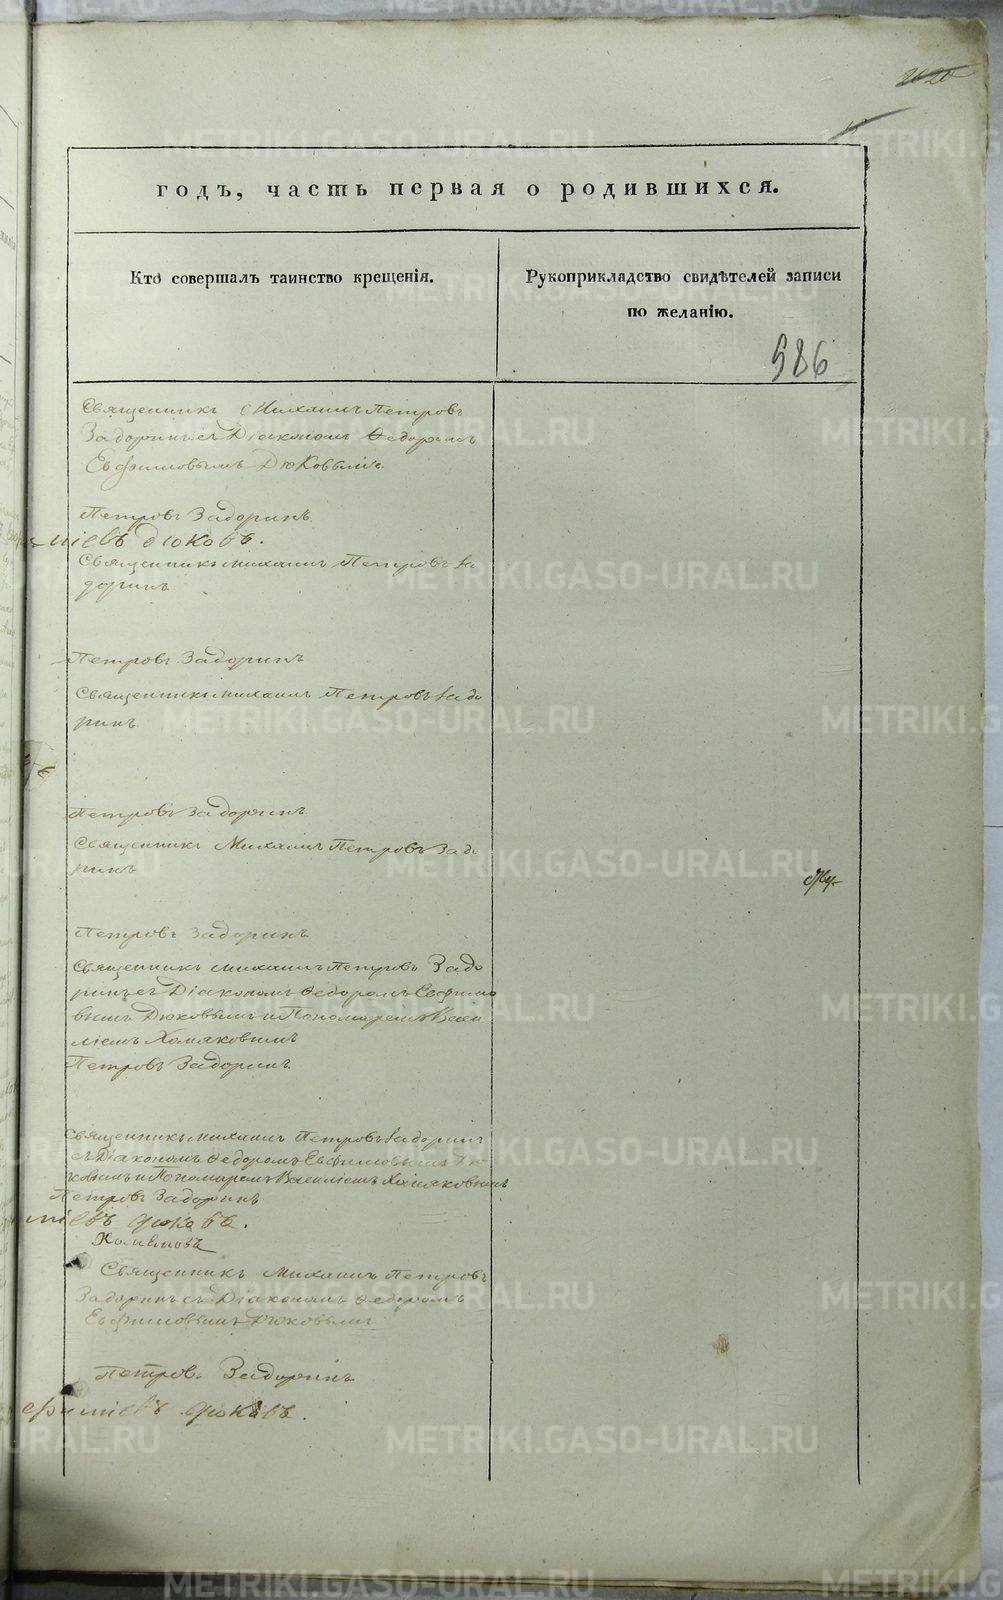 годъ, часть первая о родившихся.
Кто совершалъ таинство крещенія.
Рукоприкладство свидѣтелей записи
по желанію.
986
Священникъ Михаилъ Петровъ
Задоринъ съ Діакономъ Ѳедоромъ
Евфимовымъ Дюковымъ
Петровъ Задоринъ
міевъ дюковъ.
Священникъ михаилъ Петровъ За
доринъ
Петровъ Задоринъ
Священникъ михаилъ Петровъ Задо
ринъ
Петровъ Задоринъ
Священникъ Михаилъ Петровъ Задо
ринъ
Петровъ Задоринъ
Священникъ михаилъ Петровъ Задо
ринъ съ Діакономъ Ѳедоромъ Евфимо
вымъ Дюковымъ и Пономаремъ Васи
ліемъ Хомяковымъ
Петровъ Задоринъ
Священникъ михаилъ Петровъ Задоринъ
съ Діакономъ Ѳедоромъ Евфимовымъ Дю
ковымъ и Пономаремъ Василіемъ Хомяковымъ
Петровъ Задоринъ
міевъ дюковъ.
Хомяковъ
Священникъ Михаилъ Петровъ
Задоринъ съ Діакономъ Ѳедоромъ
Евфимовымъ Дюковымъ
Петровъ Задоринъ
ефиміевъ дюковъ.
METRIKI.GASO-URAL.RU